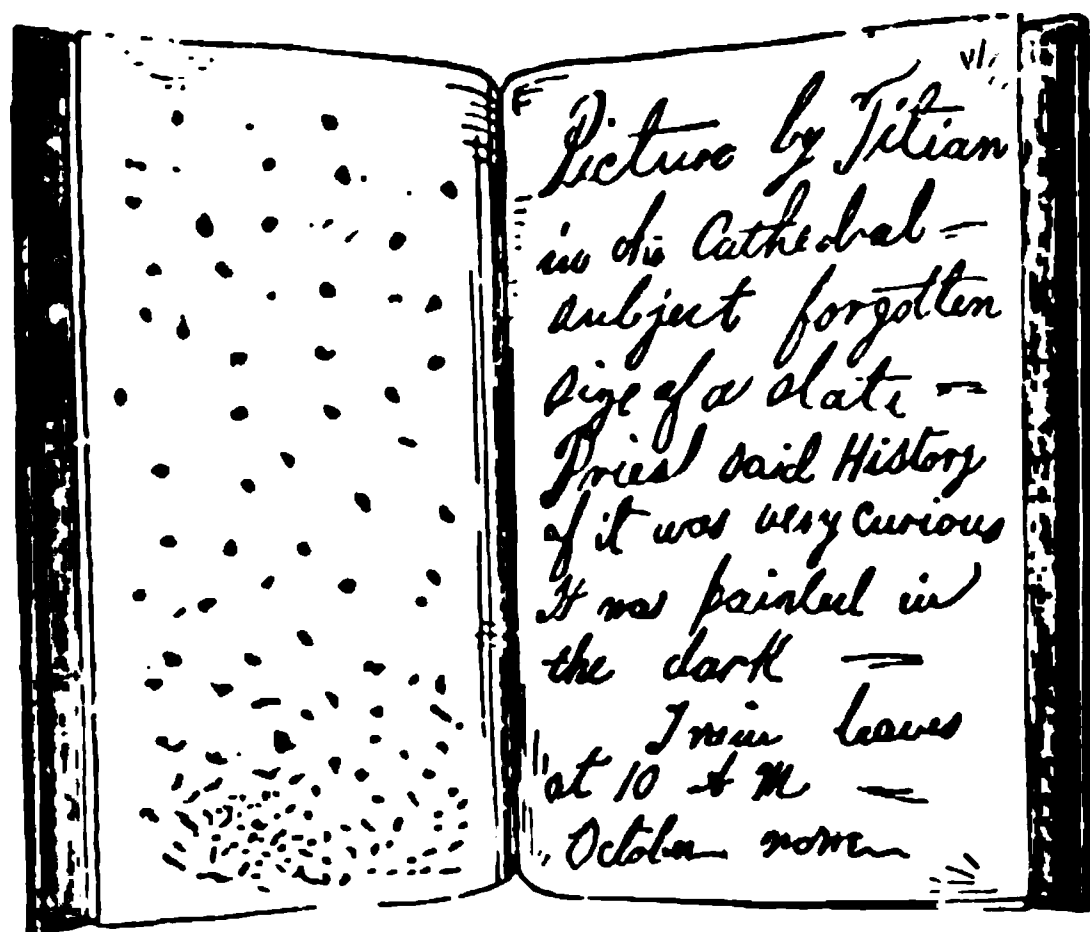 Picture by Titian
in the Cathedral –
subject forgotten
size of a slate –
Priest said History
of it was very curious
It was painted in
the dark —
Train leaves
at 10 A M —
October